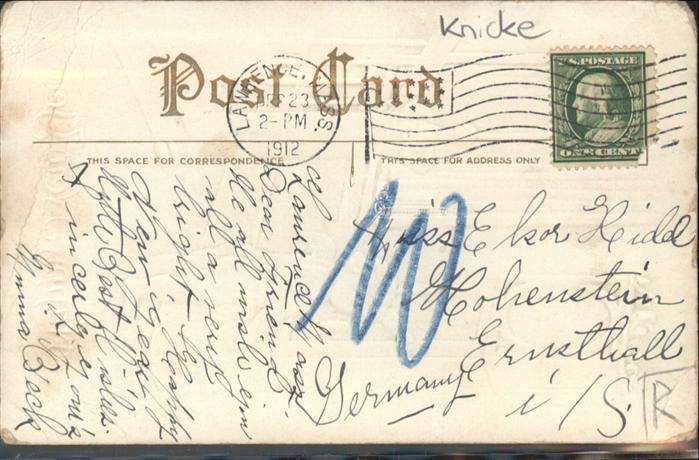 Knicke
Post Card
LAWRENCE, MASS.
DEC 23
2-PM
1912
U.S. POSTAGE
ONE CENT
THIS SPACE FOR CORRESPONDENCE
THIS SPACE FOR ADDRESS ONLY
Lawrence Mass.
Dear Friend.
We all wish
all a very
bright, Happy
New Year
With Best Wishes
Sincerely yours
Emma Beck
Miss Elsa
Hohenstein
Ernstthall
i/S.
Germany
R